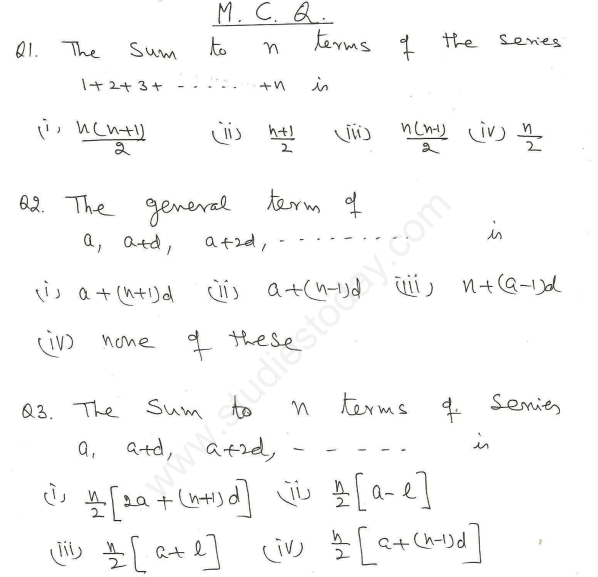 M. C. Q.
Q1. The sum to n terms of the series
1+2+3+ ------ +n is
(i) n(n+1)/2 (ii) n+1/2 (iii) n(n-1)/2 (iv) n/2
Q2. The general term of
a, a+d, a+2d, ---------- is
(i) a+(n+1)d (ii) a+(n-1)d (iii) n+(a-1)d
(iv) none of these
Q3. The sum to n terms of series
a, a+d, a+2d, ----- is
(i) n/2 [2a+(n+1)d] (ii) n/2 [a-l]
(iii) n/2 [a+l] (iv) n/2 [a+(n-1)d]
www.studiestoday.com